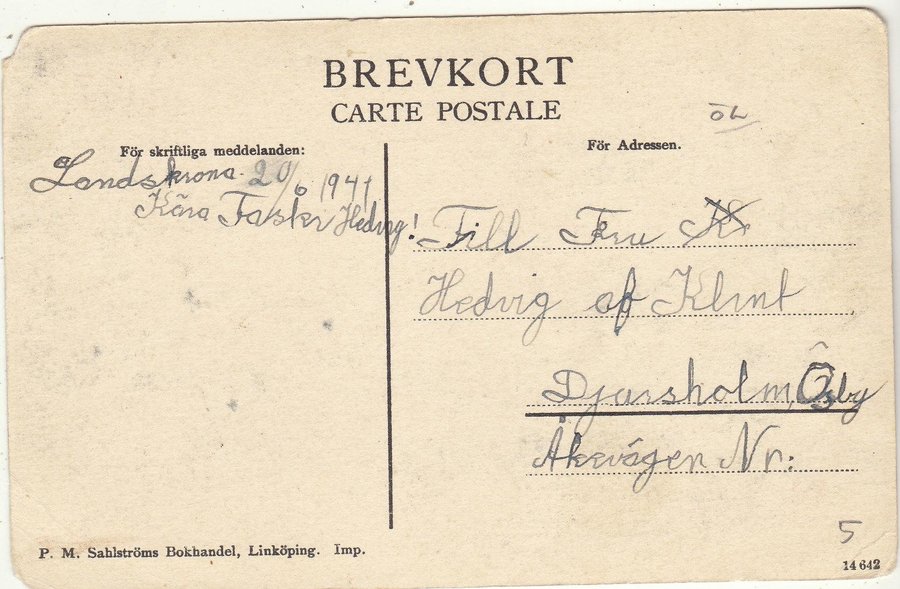 BREVKORT
CARTE POSTALE
ÖL
För skriftliga meddelanden:
För Adressen.
Landskrona. 20/6 1941
Kära Faskr Hedvig!
Till Fru K
Hedvig af Klint
Djursholm, Ösby
Åkevägen Nr:
5
P. M. Sahlströms Bokhandel, Linköping. Imp.
14642